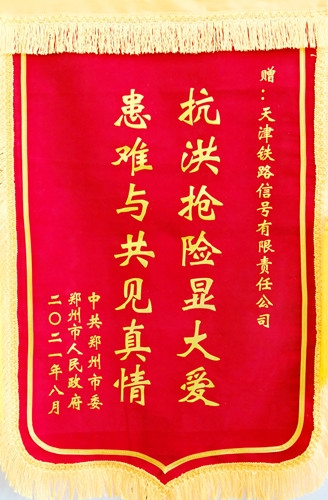 赠：天津铁路信号有限责任公司
抗洪抢险显大爱
患难与共见真情
中共郑州市委
郑州市人民政府
二〇二一年八月